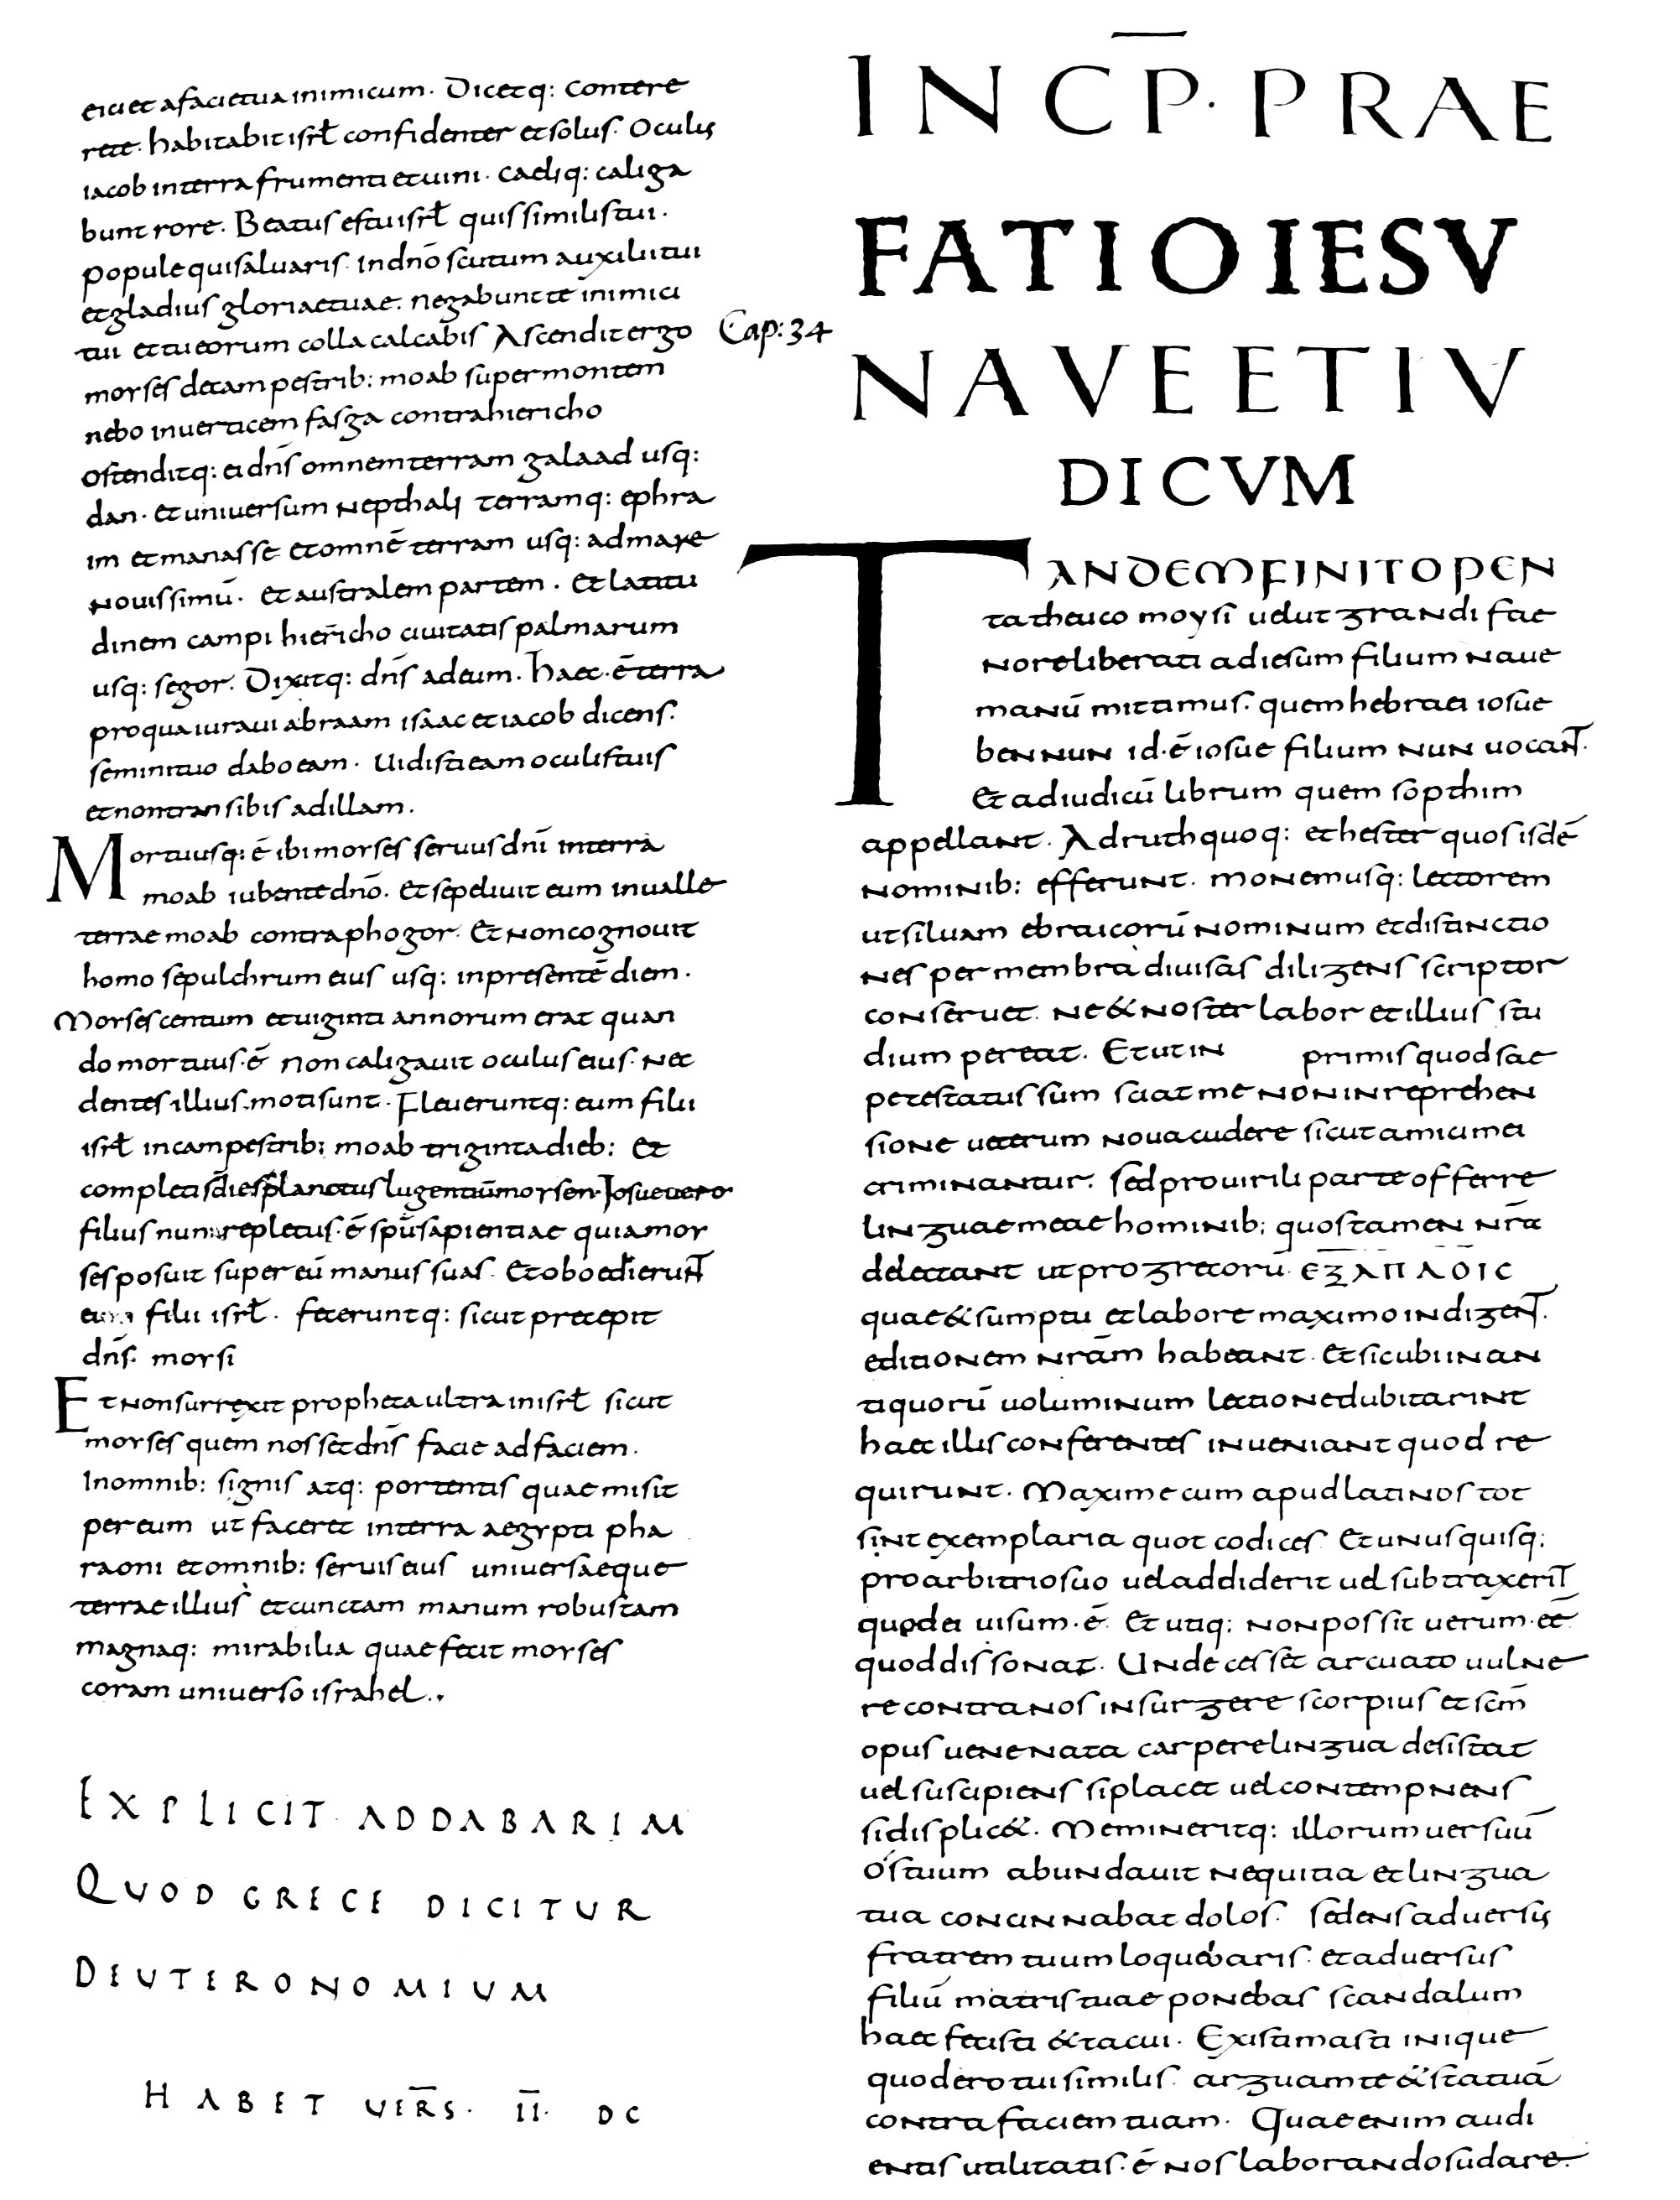 eiciet a facie tua inimicum. Dicetq: contere
rete. habitabit isrł confidenter et solus. Oculis
iacob in terra frumenti et uini. caeliq: caliga
bunt rore. Beatus es tu isrł quis similis tui.
popule qui saluaris. in dnō scutum auxilii tui
et gladius gloriae tuae. negabunt te inimici
tui et tu eorum colla calcabis Ascendit ergo
Cap: 34
morses de campestrib: moab super montem
nebo in uerticem fasga contra hiericho
Ostenditq: ei dn̄s omnem terram galaad usq:
dan. et uniuersum nepthali terramq: ephra
im et manasse et omnē terram usq: ad mare
nouissimū. et australem partem. et latitu
dinem campi hiericho ciuitatis palmarum
usq: segor. Dixitq: dn̄s ad eum. haec. ē terra
pro qua iuraui abraam isaac et iacob dicens.
semini tuo dabo eam. Uidisti eam oculis tuis
et non transibis ad illam.
Mortuusq: ē ibi morses seruus dnī in terra
moab iubente dnō. et sepeliuit eum in ualle
terrae moab contra phogor. Et non cognouit
homo sepulchrum eius usq: in presentē diem.
Morses centum et uiginti annorum erat quan
do mortuus. ē non caligauit oculus eius. nec
dentes illius moti sunt. Fleueruntq: eum filii
isrł in campestrib: moab triginta dieb: et
completi s̄ dies planctus lugentiū morsen. Iosue uero
filius nun repletus. ē spū sapientiae quia mor
ses posuit super eū manus suas. Et oboedierunt̄
ei filii isrł. feceruntq: sicut precepit
dn̄s. morsi
Et non surrexit propheta ultra in isrł sicut
morses quem nosset dn̄s facie ad faciem.
In omnib: signis atq: portentis quae misit
per eum ut faceret in terra aegypti pha
raoni et omnib: seruis eius uniuersaeque
terrae illius et cunctam manum robustam
magnaq: mirabilia quae fecit morses
coram uniuerso israhel..
EXPLICIT ADDABARIM
QUOD GRECE DICITUR
DEUTERONOMIUM
HABET UER̄S. ĪĪ. DC
INCP̄. PRAE
FATIO IESV
NAVE ET IV
DICVM
TANDEM FINITO PEN
tatheuco moysi uelut grandi fae
nore liberati ad iesum filium naue
manū mittimus. quem hebraei iosue
bennun id. ē iosue filium nun uocant̄.
Et ad iudicū librum quem sopthim
appellant. Ad ruth quoq: et hester quos isdē
nominib: efferunt. monemusq: lectorem
ut siluam ebraicorū nominum et distinctio
nes per membra diuisas diligens scriptor
conseruet. ne & noster labor et illius stu
dium pereat. Et ut in primis quod sae
pe testatus sum sciat me non in reprehen
sione ueterum noua cudere sicut amici mei
criminantur. sed pro uirili parte offerre
linguae meae hominib: quos tamen nr̄a
delectant ut pro grecorū ΕΞΑΠΛΟΙC
quae & sumptu et labore maximo indigent̄.
editionem nr̄am habeant. et sicubi in an
tiquorū uoluminum lectione dubitarint
haec illis conferentes inueniant quod re
quirunt. Maxime cum apud latinos tot
sint exemplaria quot codices. Et unusquisq:
pro arbitrio suo uel addiderit uel subtraxerit
quod ei uisum. ē. Et utiq: non possit uerum. eē
quod dissonat. Unde cesset arcuato uulne
re contra nos insurgere scorpius et sc̄m
opus uenenata carpere lingua desistat
uel suscipiens si placet uel contempnens
si displic&. Memineritq: illorum uersuū
Os tuum abundauit nequitia et lingua
tua concinnabat dolos. sedens aduersus
fratrem tuum loquebaris. et aduersus
filiū matris tuae ponebas scandalum
haec fecisti & tacui. Existimasti inique
quod ero tui similis. arguam te & statuā
contra faciem tuam. Quae enim audi
entis utilitatis. ē nos laborando sudare.